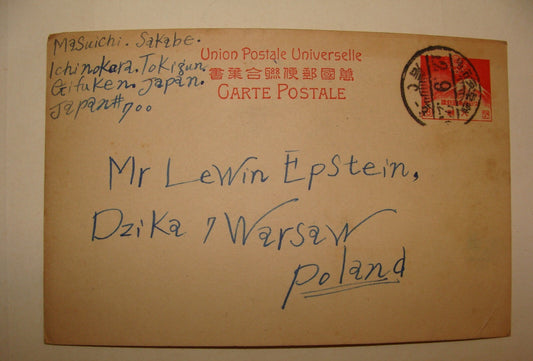 MaSuichi. Sakabe.
Ichinokura. Tokigun.
Gifuken. Japan.
Japan# 700
Union Postale Universelle
萬國郵便聯合葉書
CARTE POSTALE
Mr Lewin EpStein,
Dzika 7 Warsaw
Poland